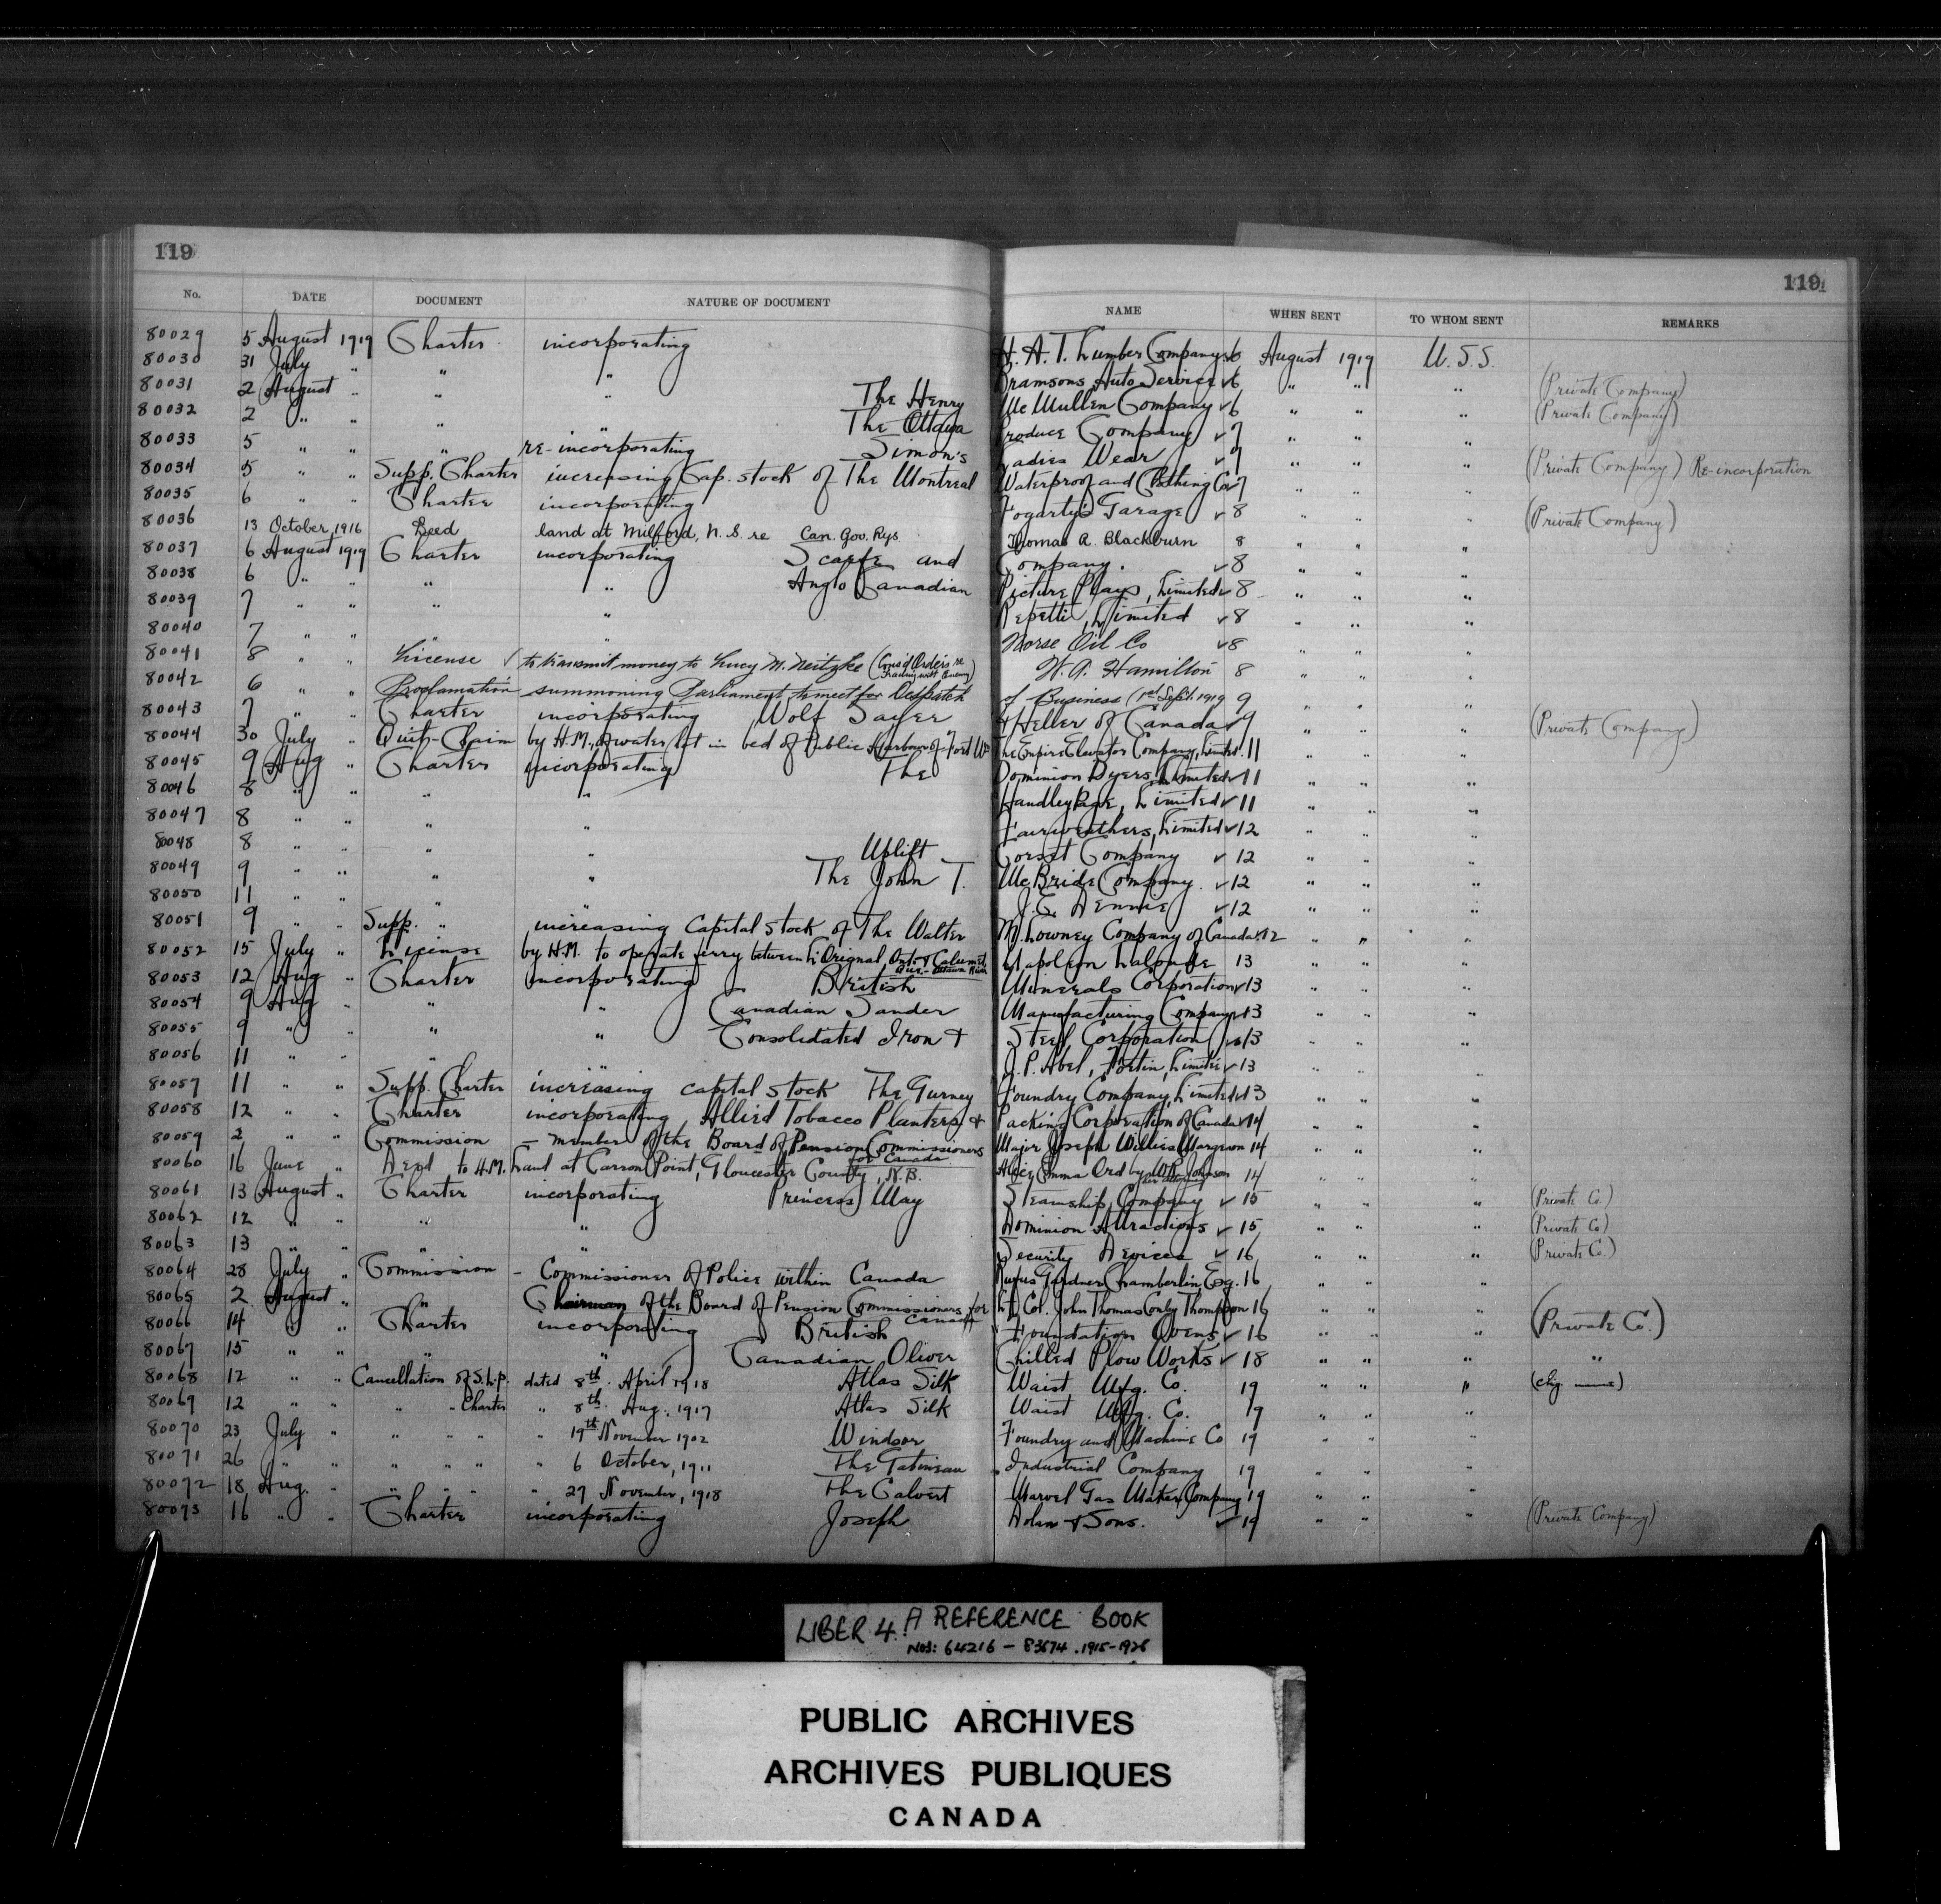 119 119
No. DATE DOCUMENT NATURE OF DOCUMENT NAME WHEN SENT TO WHOM SENT REMARKS
80029 5 August 1919 Charter incorporating H. A. T. Lumber Company ✓6 August 1919 U.S.S.
80030 31 July " " " Bramsons Auto Service ✓6 " " " (Private Company)
80031 2 August " " " The Henry McMullen Company ✓6 " " " (Private Company)
80032 2 " " " " The Ottawa Produce Company ✓7 " " "
80033 5 " " " re-incorporating Simon's Ladies Wear ✓7 " " " (Private Company) Re-incorporation
80034 5 " " Supp. Charter increasing Cap. stock of The Montreal Waterproof and Clothing Co ✓7 " " "
80035 6 " " Charter incorporating Fogarty's Garage ✓8 " " " (Private Company)
80036 13 October, 1916 Deed land at Milford, N.S. re Can. Gov. Rys. Thomas A. Blackburn 8 " " "
80037 6 August 1919 Charter incorporating Scarfe and Company. ✓8 " " "
80038 6 " " " " Anglo Canadian Picture Plays, Limited ✓8 " " "
80039 7 " " " " Repetti, Limited ✓8 " " "
80040 7 " " " " Norse Oil Co ✓8 " " "
80041 8 " " License ✓ to transmit money to Lucy M. Neitzke (Cons'd Orders re Trading with Enemy) W. A. Hamilton 8 " " "
80042 6 " " Proclamation summoning Parliament to meet for Despatch of Business (1st Sept. 1919 9 " " "
80043 7 " " Charter incorporating Wolf Sayer & Heller of Canada ✓9 " " " (Private Company)
80044 30 July " Quit-Claim by H.M., of water lot in bed of Public Harbour of Fort Wm The Empire Elevator Company, Limited. 11 " " "
80045 9 Aug " Charter incorporating The Dominion Dyers, Limited ✓11 " " "
80046 8 " " " " Handley Page, Limited ✓11 " " "
80047 8 " " " " Fairweathers, Limited ✓12 " " "
80048 8 " " " " Uplift Corset Company ✓12 " " "
80049 9 " " " " The John T. McBride Company. ✓12 " " "
80050 11 " " " " J. E. ✓12 " " "
80051 9 " " Supp. " increasing Capital Stock of The Walter M. Lowney Company of Canada ✓12 " " "
80052 15 July " License by H.M. to operate ferry between L'Orignal, Ont. & Calumet, Que. - Ottawa River Napoleon Lalonde 13 " " "
80053 12 Aug " Charter incorporating British Minerals Corporation ✓13 " " "
80054 9 Aug " " " Canadian Sander Manufacturing Company ✓13 " " "
80055 9 " " " " Consolidated Iron & Steel Corporation ✓13 " " "
80056 11 " " " " J. P. Abel, Fortin, Limitée ✓13 " " "
80057 11 " " Supp. Charter increasing capital stock The Gurney Foundry Company, Limited ✓13 " " "
80058 12 " " Charter incorporating Allied Tobacco Planters & Packing Corporation of Canada ✓14 " " "
80059 2 " " Commission - member of the Board of Pension Commissioners for Canada Major Joseph Willis Margeson 14 " " "
80060 16 June " Deed to H.M. Land at Carron Point, Gloucester County, N.B. Alice Emma Ord by Johnson her attorney 14 " " "
80061 13 August " Charter incorporating Princess May Steamship Company ✓15 " " " (Private Co.)
80062 12 " " " " Dominion Attractions ✓15 " " " (Private Co)
80063 13 " " " " Security Devices ✓16 " " " (Private Co.)
80064 28 July " Commission - Commissioner of Police within Canada Rufus Gardner Chamberlin, Esq. 16 " " "
80065 2 August " " Chairman of the Board of Pension Commissioners for Canada Lt. Col. John Thomas Conly Thompson 16 " " "
80066 14 " " Charter incorporating British Foundation Ovens ✓16 " " " (Private Co.)
80067 15 " " " " Canadian Oliver Chilled Plow Works ✓18 " " " "
80068 12 " " Cancellation of S.L.P. dated 8th. April 1918 Atlas Silk Waist Mfg. Co. 19 " " " (chg. name)
80069 12 " " " " Charter " 8th. Aug. 1917 Atlas Silk Waist Mfg. Co. 19 " " "
80070 23 July " " " " " 19th November 1902 Windsor Foundry and Machine Co 19 " " "
80071 26 " " " " " " 6 October, 1911 The Gatineau Industrial Company 19 " " "
80072 18 Aug. " " " " " 27 November, 1918 The Calvert Marvel Gas Maker Company 19 " " "
80073 16 " " Charter incorporating Joseph Dolan & Sons. ✓19 " " " (Private Company)
LIBER 4. A REFERENCE BOOK
NOS: 64216 - 83674 . 1915-1926
PUBLIC ARCHIVES
ARCHIVES PUBLIQUES
CANADA